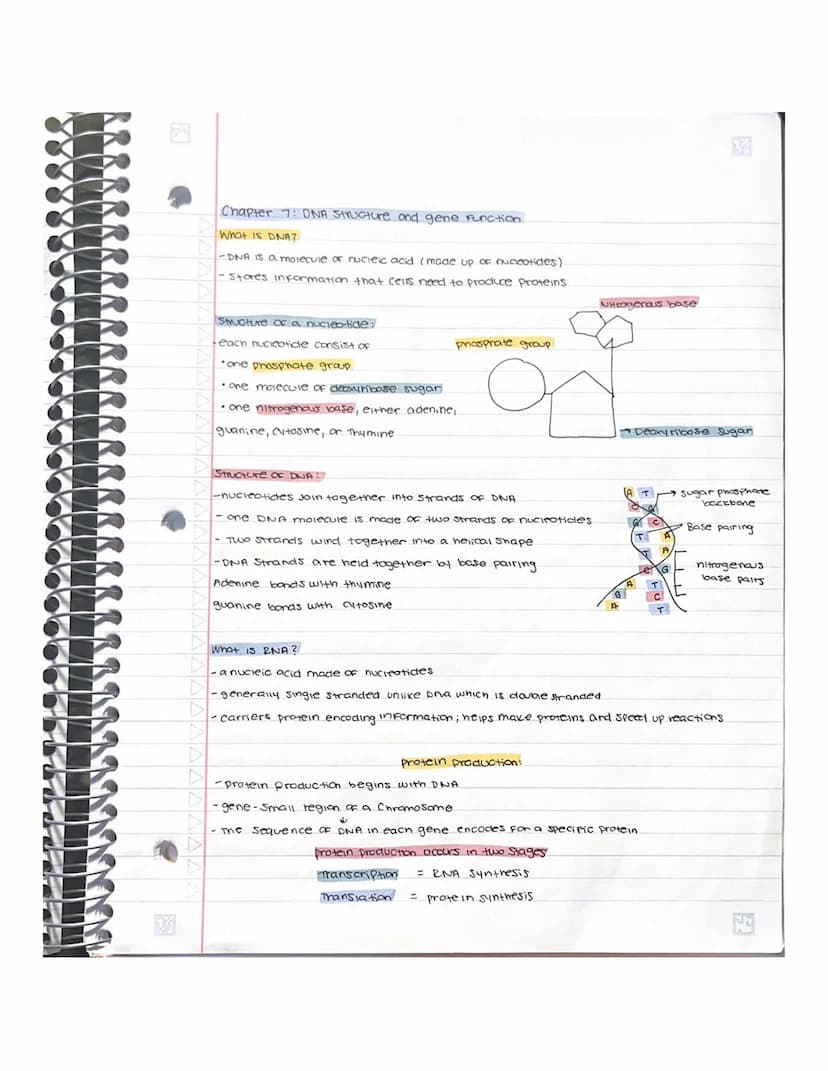 Chapter 7: DNA Structure and gene Function
What is DNA?
-DNA is a molecule of nucleic acid (made up of nucleotides)
- Stores information that cells need to produce proteins
Nitrogenous base
Structure of a nucleotide:
-each nucleotide consist of
phosphate group
•one phosphate group
•one molecule of deoxyribose sugar
•one nitrogenous base, either adenine,
guanine, cytosine, or Thymine
→ Deoxyribose Sugar
Structure of DNA:
-nucleotides join together into strands of DNA
- one DNA molecule is made of two strands of nucleotides
- Two strands wind together into a helical shape
-DNA strands are held together by base pairing
Adenine bonds with thymine
guanine bonds with cytosine
A T
→ sugar phosphate
backbone
C G
G C
Base pairing
T A
T A
C G
nitrogenous
base pairs
A T
G C
A T
What is RNA?
- a nucleic acid made of nucleotides
- generally single stranded unlike Dna which is double stranded
- carriers protein encoding information; helps make proteins and speed up reactions
protein production:
- protein production begins with DNA
- gene-small region of a Chromosome
↓
- The sequence of DNA in each gene encodes for a specific protein
protein production occurs in two stages
Transcription = RNA synthesis
Translation = protein synthesis